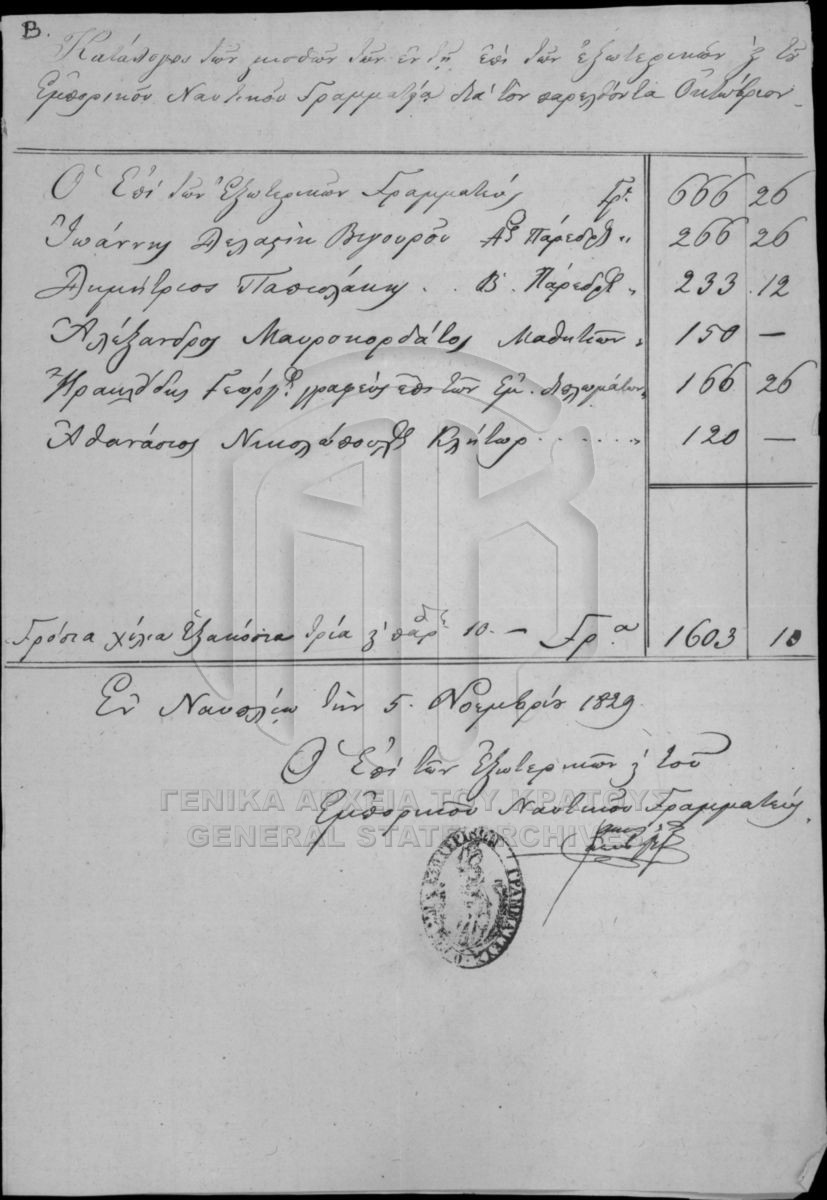 Β.
Κατάλογος τῶν μισθῶν τῶν ἐν τῇ ἐπὶ τῶν Ἐξωτερικῶν ϗ τοῦ
Ἐμπορικοῦ Ναυτικοῦ Γραμματείᾳ διὰ τὸν παρελθόντα Ὀκτώβριον
Ὁ Ἐπὶ τῶν Ἐξωτερικῶν Γραμματεύς Γρ. 666 26
Ἰωάννης Βιγουρου Αος Πάρεδρος „ 266 26
Δημήτριος Β. Πάρεδρος „ 233 .12
Ἀλέξανδρος Μαυροκορδάτος Μαθητιῶν „ 150 —
Ἡρακλείδης Γεώργιος γραφεὺς ἐπὶ τῶν διπλωμάτων „ 166 26
Ἀθανάσιος Νικολόπουλος Κλήτωρ . . . . . . „ 120 —
Γρόσια χίλια ἑξακόσια τρία ϗ παρ 10. — Γρ.α 1603 10
Ἐν Ναυπλίῳ τὴν 5. Νοεμβρίου 1829.
Ὁ Ἐπὶ τῶν Ἐξωτερικῶν ϗ τοῦ
Ἐμπορικοῦ Ναυτικοῦ Γραμματεύς.
ΓΕΝΙΚΑ ΑΡΧΕΙΑ ΤΟΥ ΚΡΑΤΟΥΣ
GENERAL STATE ARCHIVES
Ο ΕΠΙ ΤΩΝ ΕΞΩΤΕΡΙΚΩΝ ΓΡΑΜΜΑΤΕΥΣ